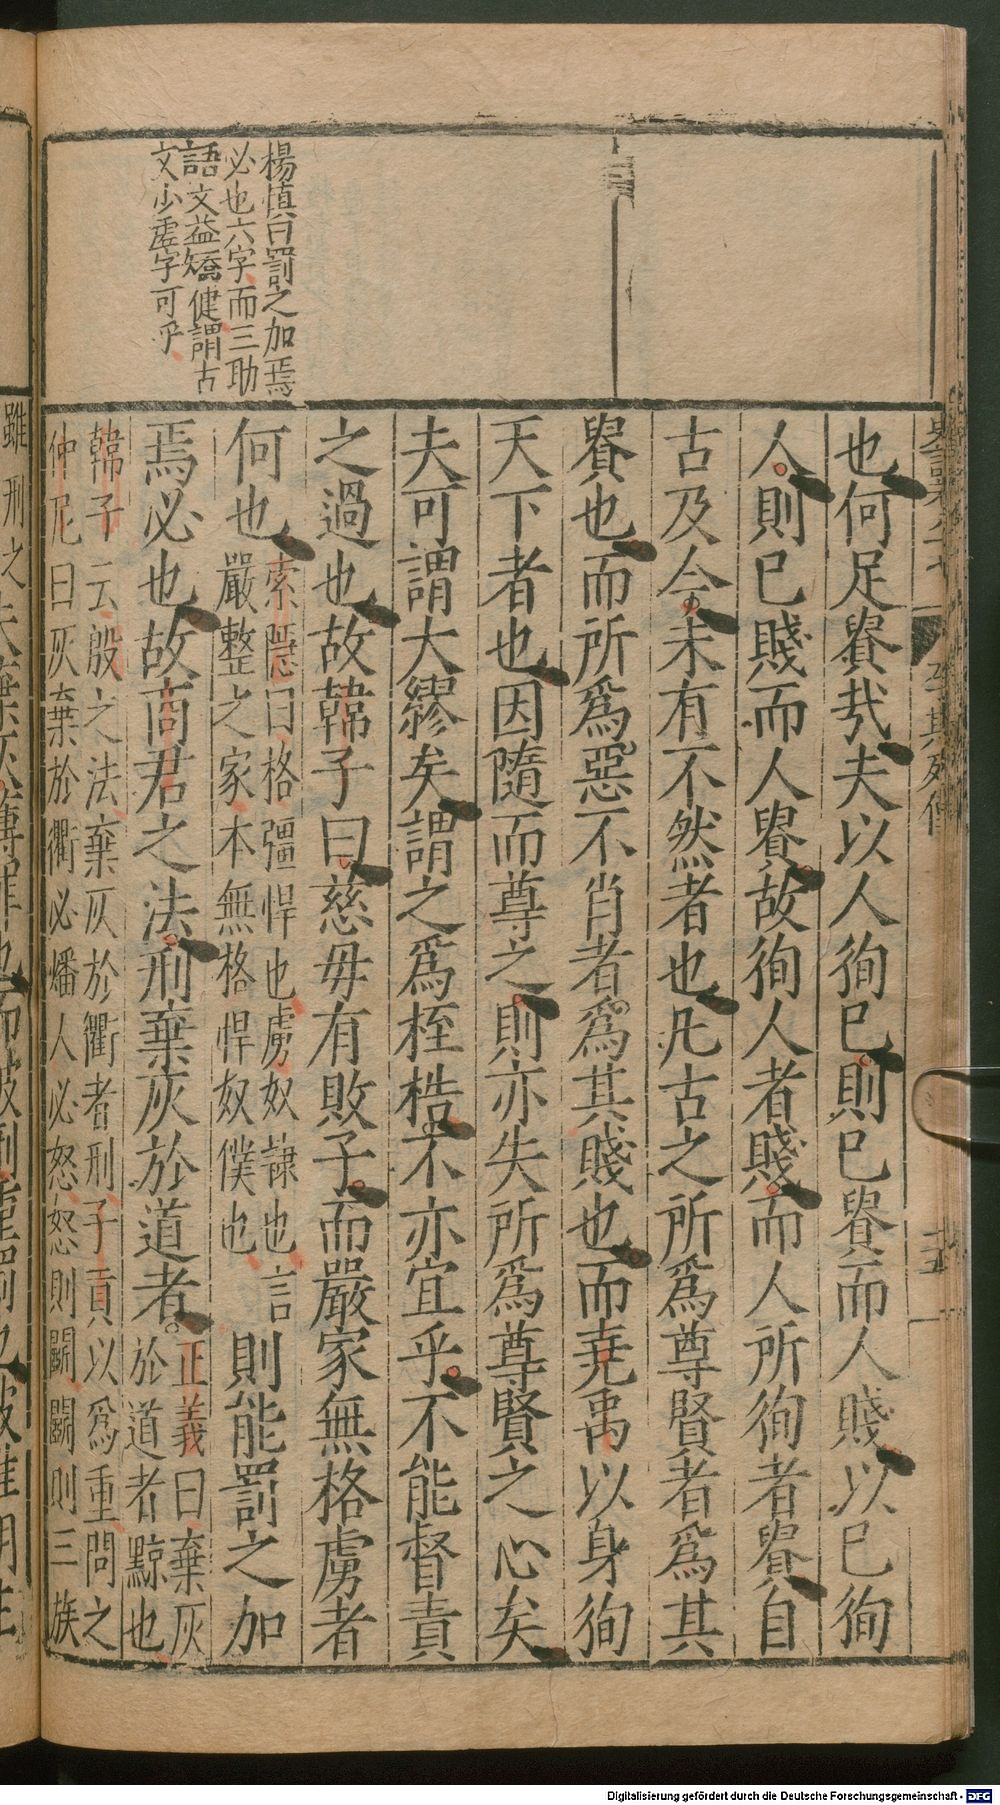 楊慎曰罰之加焉
必也六字而三助
語文益矯健謂古
文少虛字可乎
李斯列傳
十五
也何足貴哉夫以人徇己則己貴而人賤以己徇
人則己賤而人貴故徇人者賤而人所徇者貴自
古及今未有不然者也凡古之所爲尊賢者爲其
貴也而所爲惡不肖者爲其賤也而堯禹以身徇
天下者也因隨而尊之則亦失所爲尊賢之心矣
夫可謂大繆矣謂之爲桎梏不亦宜乎不能督責
之過也故韓子曰慈母有敗子而嚴家無格虜者
何也索隱曰格彊悍也虜奴隸也言嚴整之家本無格悍奴僕也則能罰之加
焉必也故商君之法刑棄灰於道者正義曰棄灰於道者黥也
韓子云殷之法棄灰於衢者刑子貢以爲重問之
仲尼曰灰棄於衢必燔人必怒怒則鬬鬬則三族
雖刑之
Digitalisierung gefördert durch die Deutsche Forschungsgemeinschaft - DFG